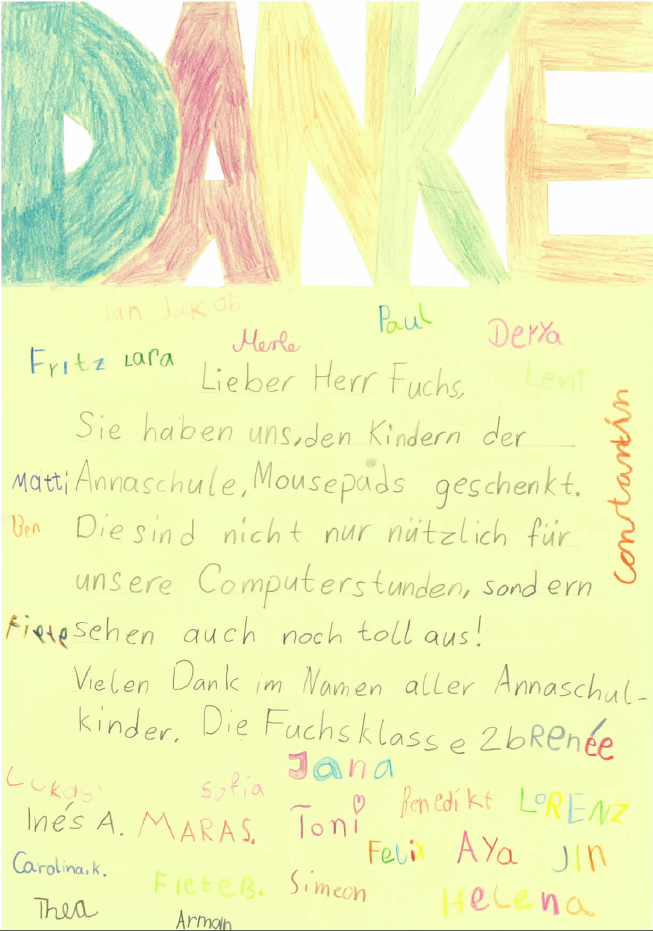 DANKE
Jan Jakob
Paul
Merle
Derya
Fritz Lara
Leni
Lieber Herr Fuchs,
Constantin
Sie haben uns, den Kindern der
Matti
Annaschule, Mousepads geschenkt.
Ben
Die sind nicht nur nützlich für
unsere Computerstunden, sondern
Fiete
sehen auch noch toll aus!
Vielen Dank im Namen aller Annaschul-
kinder. Die Fuchsklasse 2b
Renée
Jana
Lukas
Sofia
Benedikt LORENZ
Inés A. MARA S. Toni
Felix AYa JIN
Carolina.k.
Fiete B. Simeon
Helena
Thea
Arman